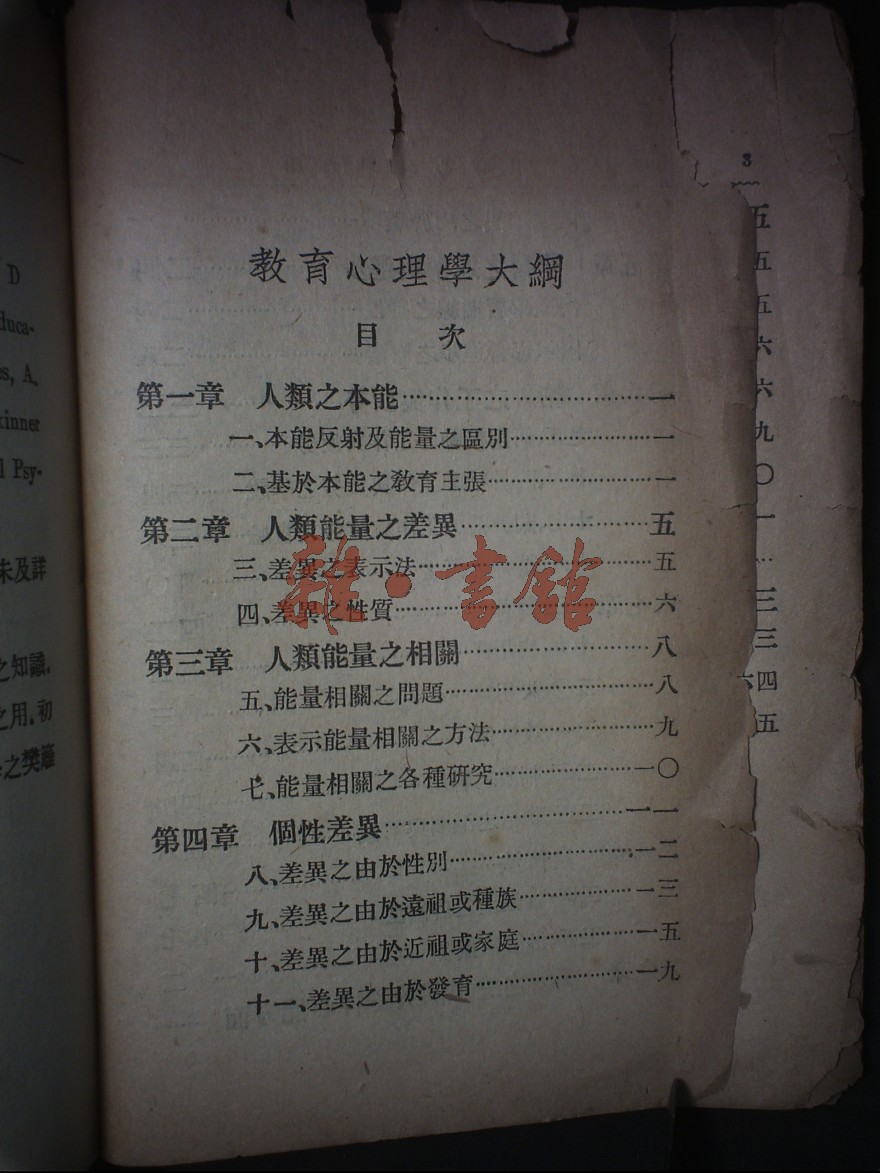 教育心理學大綱
目次
第一章 人類之本能……一
一、本能反射及能量之區別……一
二、基於本能之教育主張……一
第二章 人類能量之差異……五
三、差異之表示法……五
四、差異之性質……六
第三章 人類能量之相關……八
五、能量相關之問題……八
六、表示能量相關之方法……九
七、能量相關之各種研究……一〇
第四章 個性差異……一一
八、差異之由於性別……一二
九、差異之由於遠祖或種族……一三
十、差異之由於近祖或家庭……一五
十一、差異之由於發育……一九
雜·書館
D
duca-
es, A.
kinner
l Psy-
未及詳
之知識,
之用.初
之樊籬
3
五
五
五
六
六
九
〇
一
三
三
六四
五